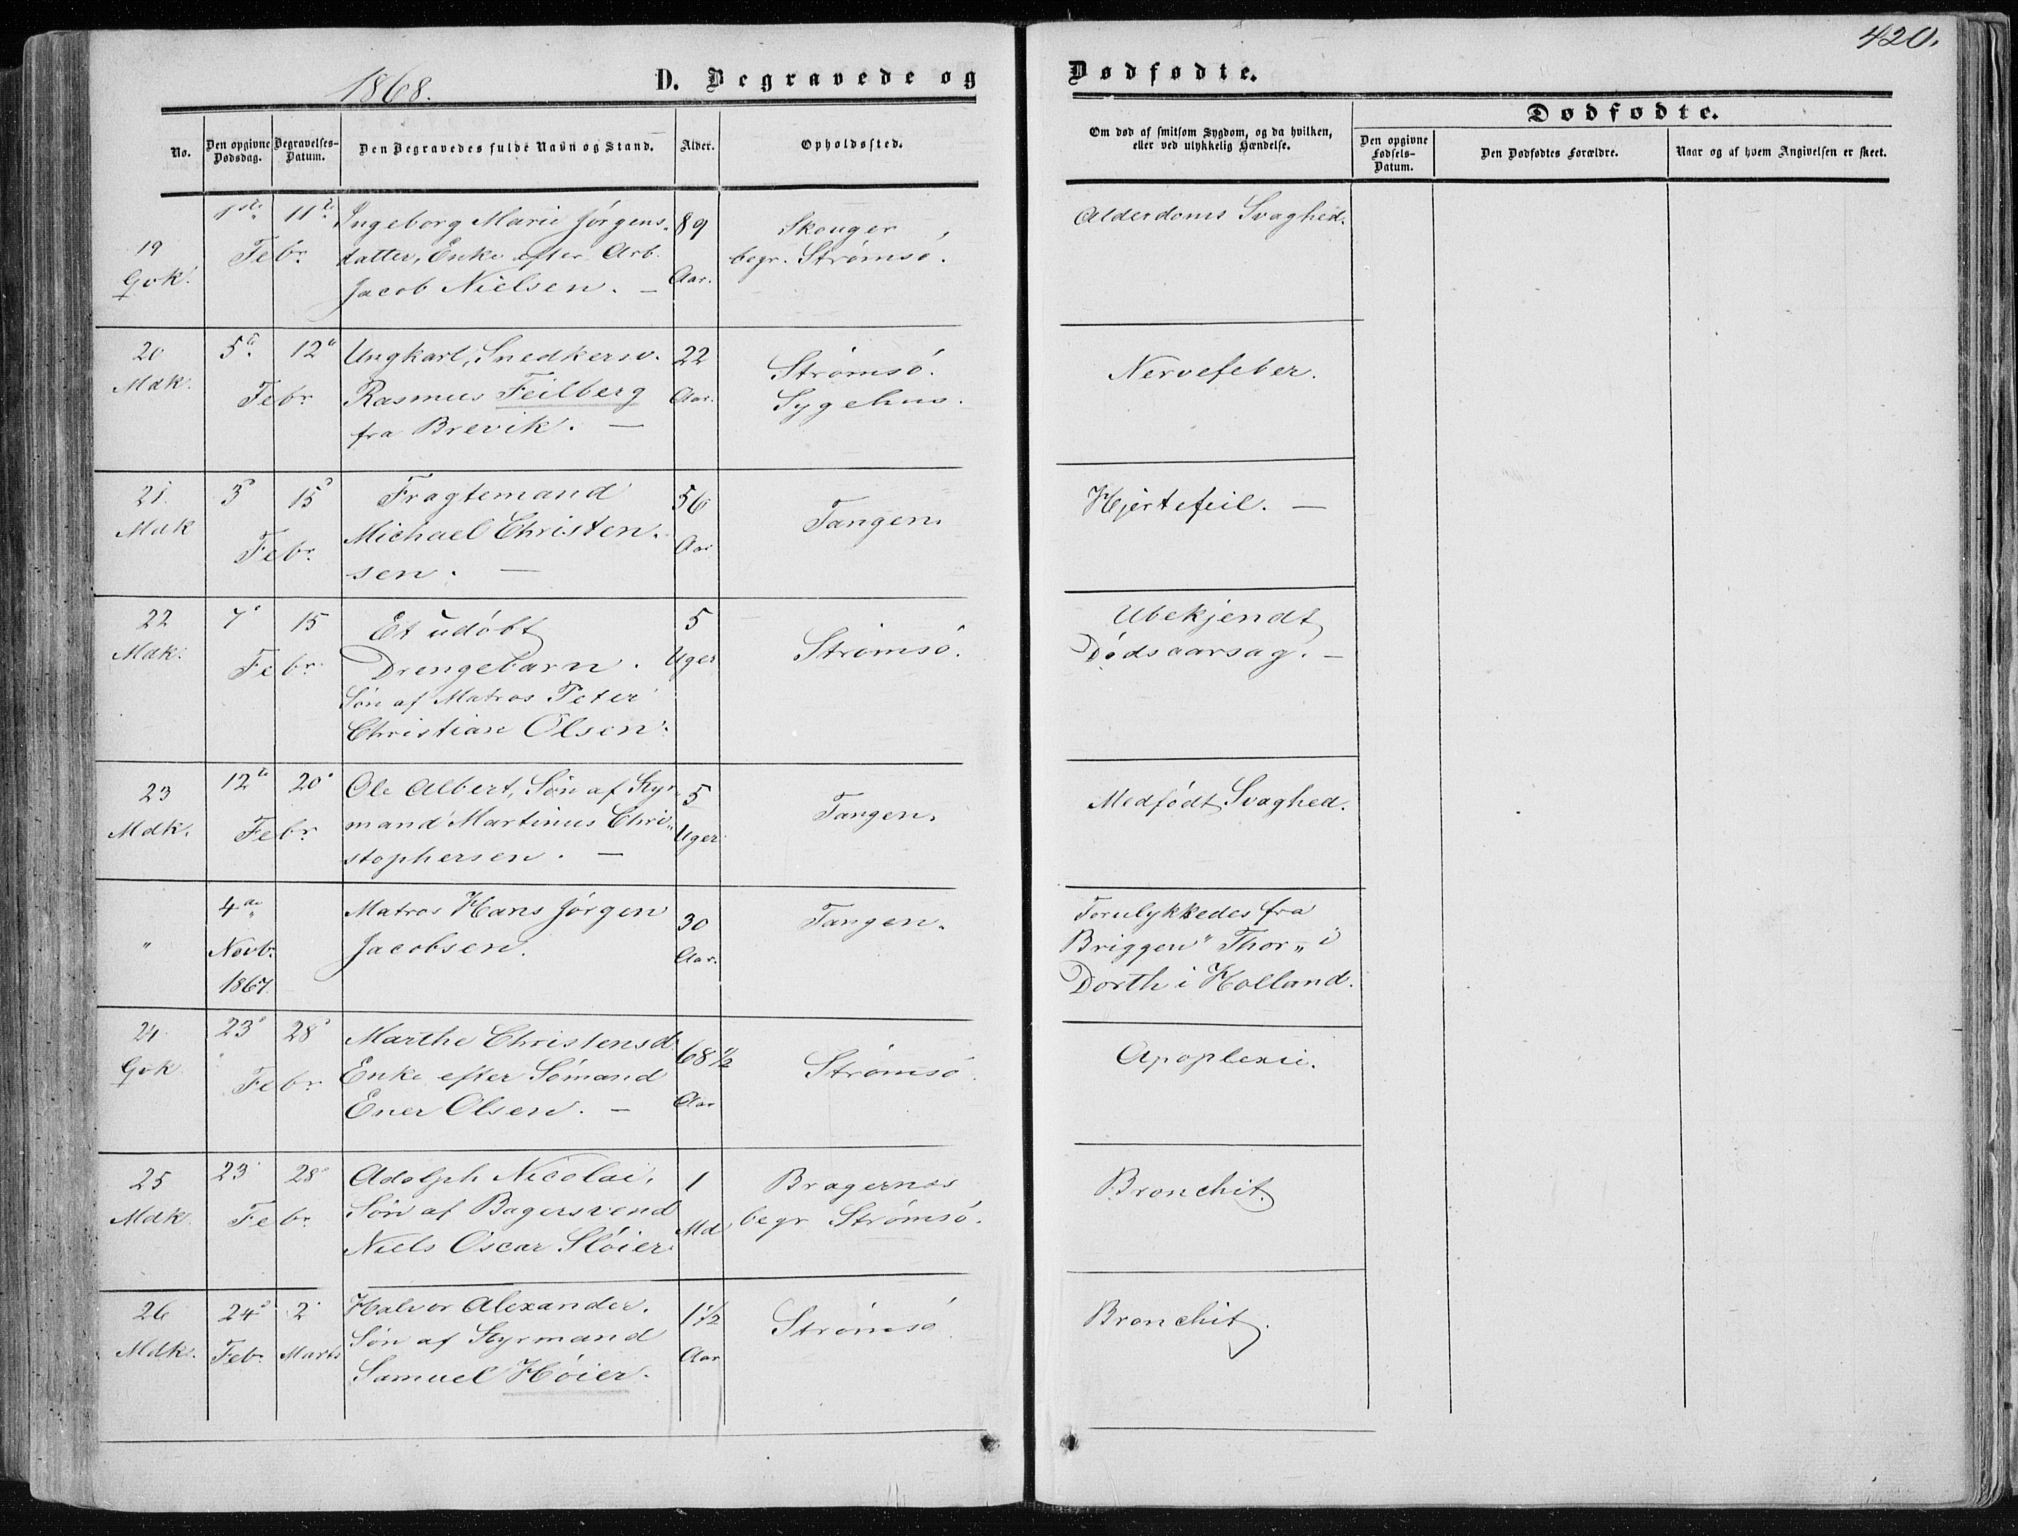 420.
1868.
D. Begravede og
Dødfødte.
No.
Den opgivne Dødsdag.
Begravelses-Datum.
Den Begravedes fulde Navn og Stand.
Alder.
Opholdssted.
Om død af smitsom Sygdom, og da hvilken, eller ved ulykkelig Hændelse.
Dødfødte.
Den opgivne Fødsels-Datum.
Den Dødfødtes Forældre.
Naar og af hvem Angivelsen er skeet.
19
Qvk.
1ste 11te
Febr.
Ingeborg Marie Jørgens-
datter, Enke efter Arb.
Jacob Nielsen. —
89
Aar.
Skouger
begr. Strømsö.
Alderdoms Svaghed.
20
Mdk.
5te 12te
Febr
Ungkarl, Snedkersv.
Rasmus Feilberg
fra Brevik. —
22
Aar.
Strømsö.
Sygehus.
Nervefeber.
21.
Mdk
3 15
Febr.
Fragtemand
Michael Christen-
sen. —
56
Aar
Tangen.
Hjertefeil. —
22
Mdk.
7 15
Febr.
Et udöbt
Drengebarn.
Sön af Matros Peter
Christian Olsen.
5
Uger
Strömsö.
Ubekjendt
Dödsaarsag. —
23
Mdk.
12te 20
Febr
Ole Albert, Sön af Styr-
mand Martinus Chri-
stophersen. —
5
Uger
Tangen.
Medfödt Svaghed.
"
4de
Novbr.
1867.
Matros Hans Jörgen
Jacobsen.
30
Aar.
Tangen.
Forulykkedes fra
Briggen "Thor" i
Dorth i Holland.
24
Qvk
23 28
Febr
Marthe Christensd
Enke efter Sömand
Ener Olsen. —
68 1/2
Aar
Strömsö.
Apoplexie.
25
Mdk.
23 28
Febr
Adolph Nicolai,
Sön af Bagersvend
Niels Oscar Slöier
1
Md
Bragernes
begr Strömsö.
Bronchit.
26
Mdk.
24 2
Febr. Marts
Halvor Alexander.
Sön af Styrmand
Samuel Höier.
1 1/2
Aar
Strömsö
Bronchit.